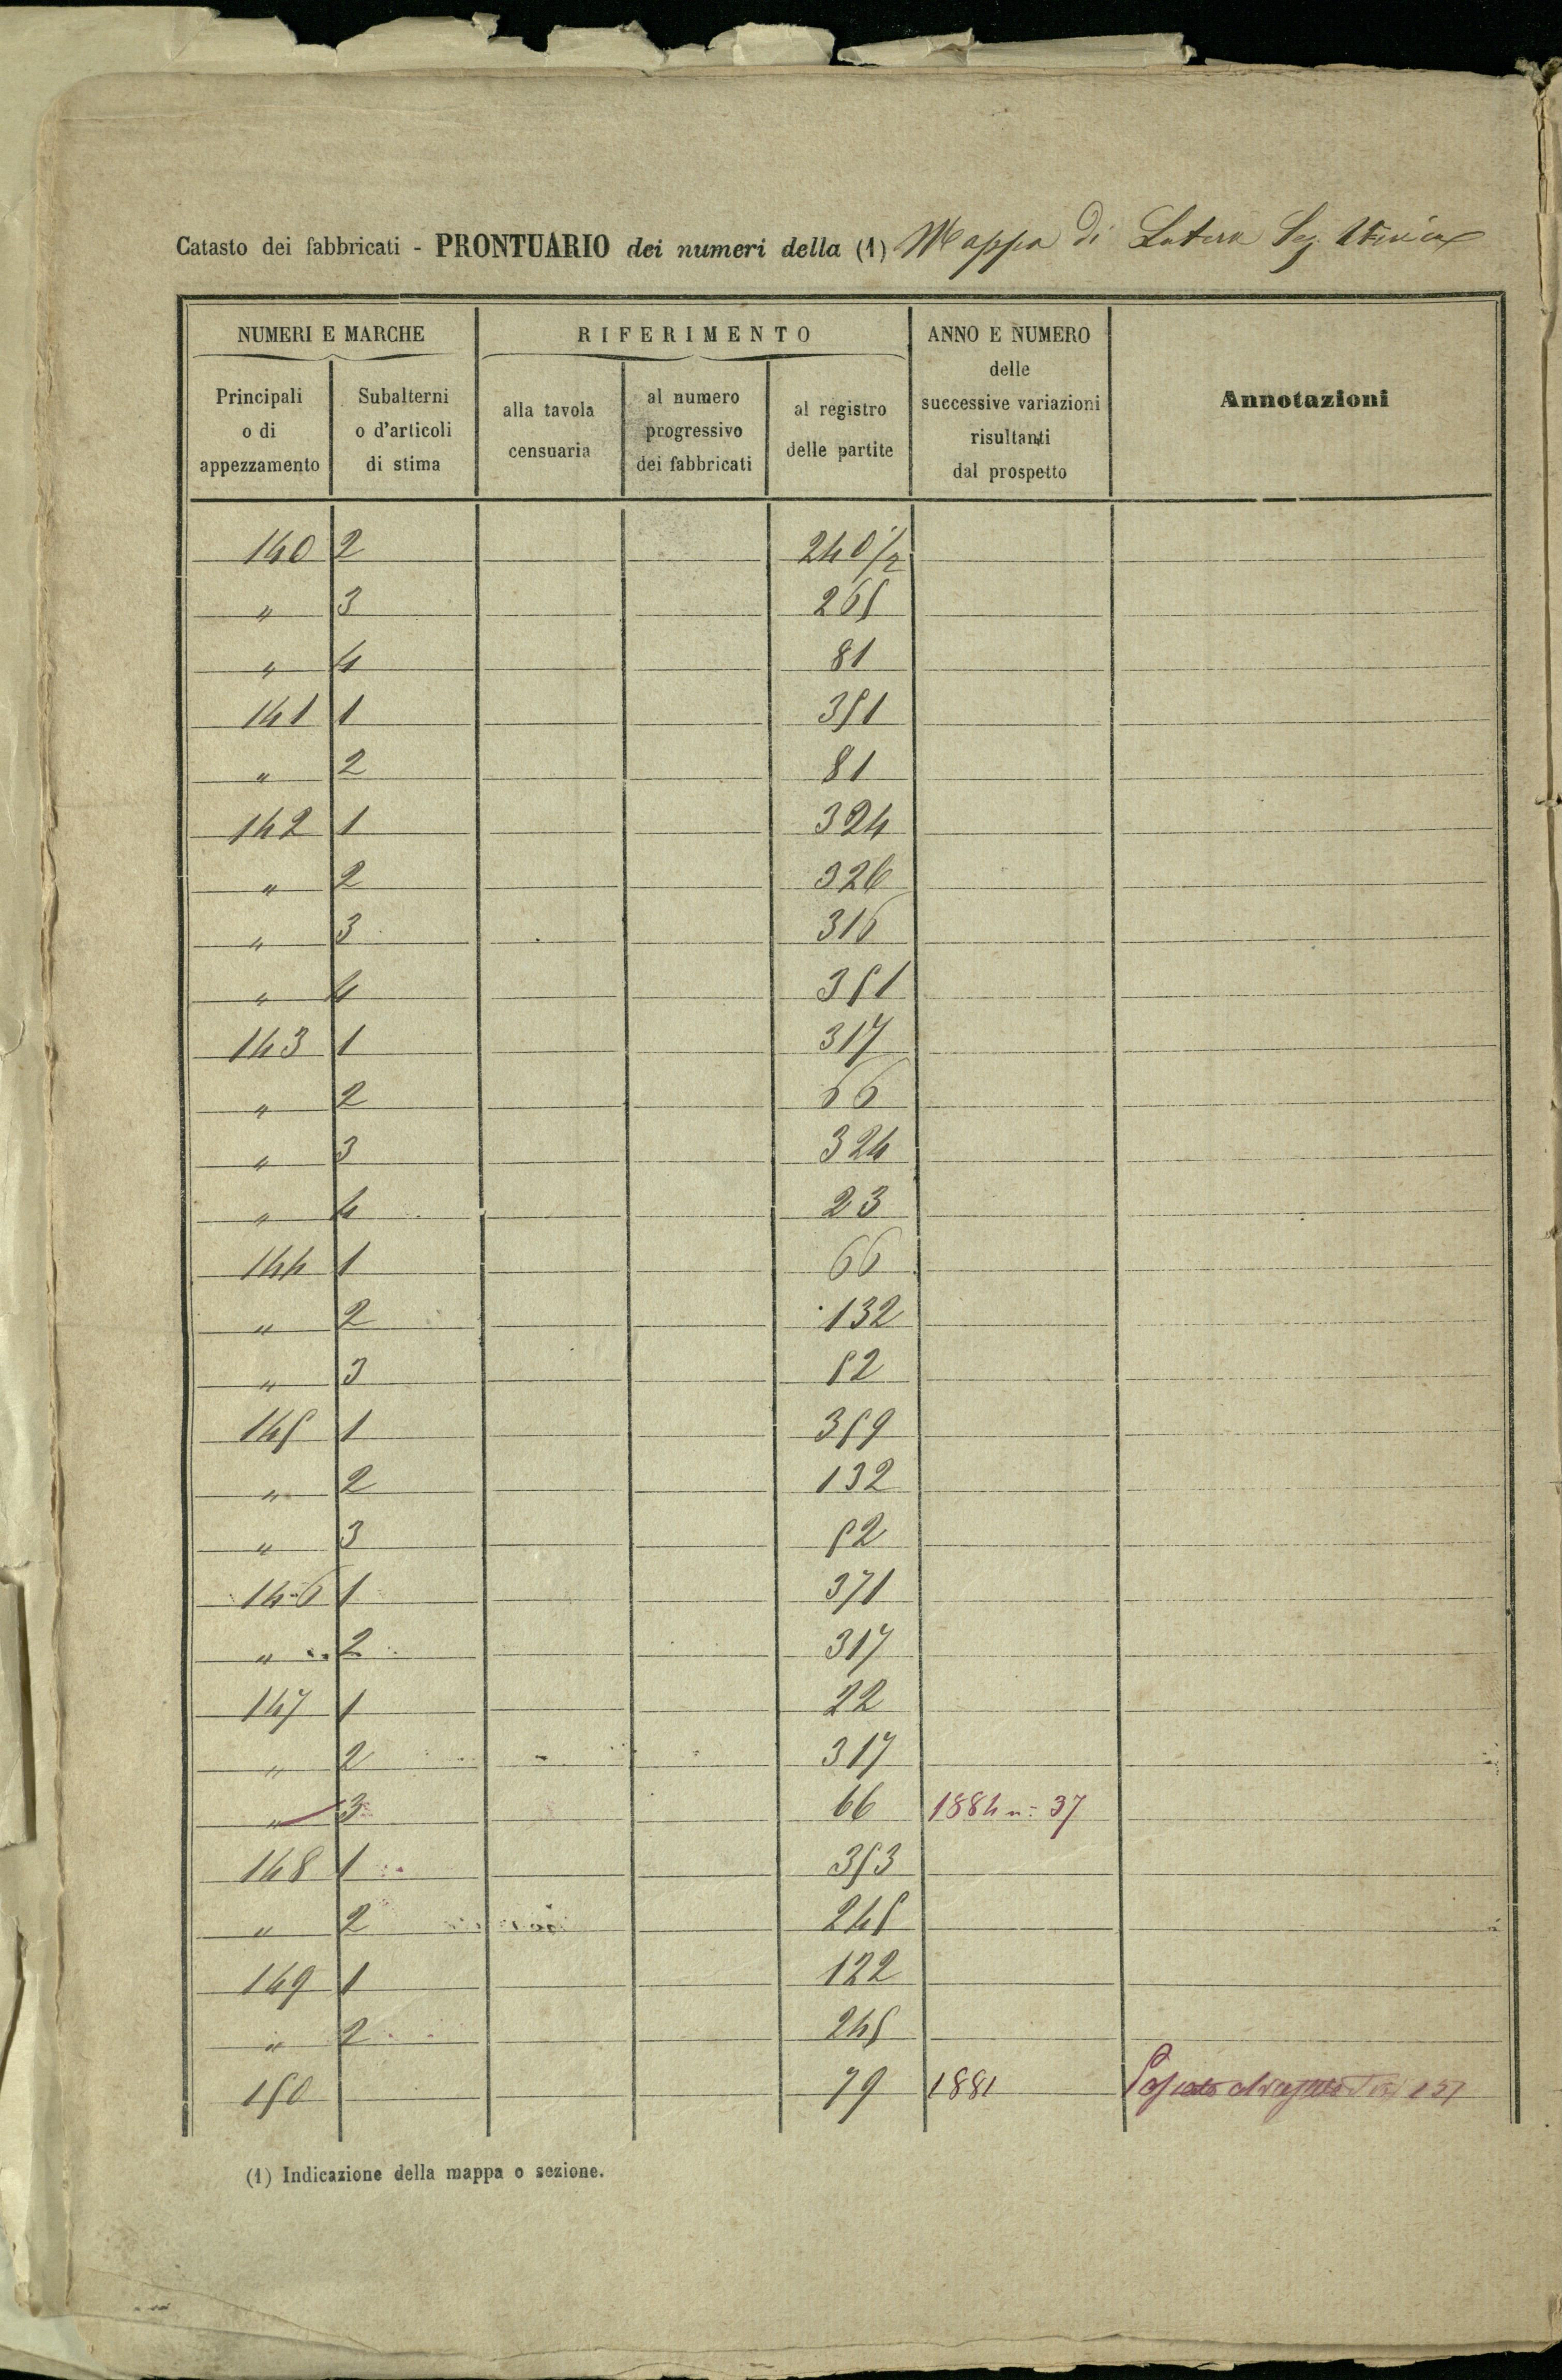 Catasto dei fabbricati - PRONTUARIO dei numeri della (1) Mappa di Latera Sez. Unica
NUMERI E MARCHE
RIFERIMENTO
ANNO E NUMERO delle successive variazioni risultanti dal prospetto
Annotazioni
Principali o di appezzamento
Subalterni o d'articoli di stima
alla tavola censuaria
al numero progressivo dei fabbricati
al registro delle partite
140 2 240 1/2
" 3 265
" 4 81
141 1 351
" 2 81
142 1 324
" 2 326
" 3 316
" 4 351
143 1 317
" 2 66
" 3 324
" 4 23
144 1 66
" 2 132
" 3 52
145 1 359
" 2 132
" 3 52
146 1 371
" 2 317
147 1 22
" 2 317
" 3 66 1884 n: 37
148 1 353
" 2 245
149 1 122
" 2 245
150 79 1881
(1) Indicazione della mappa o sezione.